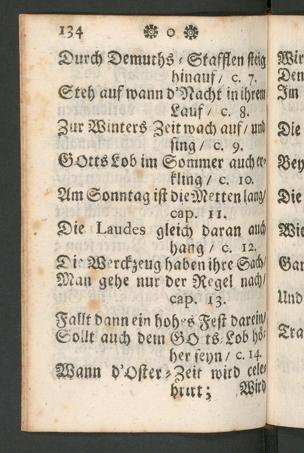 134 ❁ o ❁
Durch Demuths-Stafflen steig
hinauf / c. 7.
Steh auf wann d'Nacht in ihrem
Lauf / c. 8.
Zur Winters Zeit wach auf / und
sing / c. 9.
GOtts Lob im Sommer auch er-
kling / c. 10.
Am Sonntag ist die Metten lang /
cap. 11.
Die Laudes gleich daran auch
hang / c. 12.
Die Werckzeug haben ihre Sach /
Man gehe nur der Regel nach /
cap. 13.
Fallt dann ein hohes Fest darein /
Sollt auch dem GOtts Lob hö-
her seyn / c. 14.
Wann d'Oster-Zeit wird cele-
brirt; Wird
Wir
Den
Im
Die
Bey
Die
Wie
Gar
Und
Tra